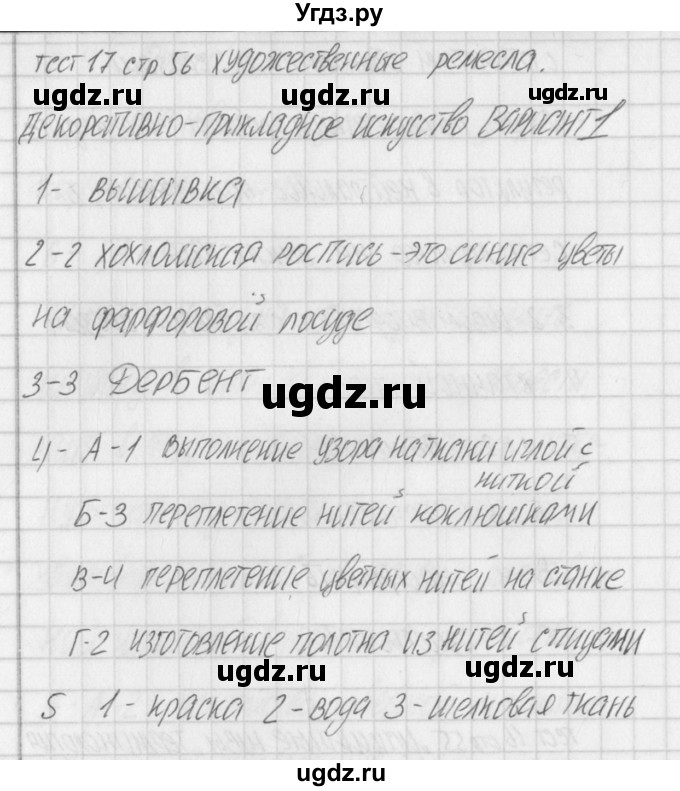 Угдз.ру
тест 17 стр 56 художественные ремесла.
ugdz.ru ugdz.ru
Декоративно-прикладное искусство Вариант 1
1- вышивка
2-2 хохломская роспись-это синие цветы
на фарфоровой посуде
3-3 Дербент
ugdz.ru
4- А-1 выполнение узора на ткани иглой с
ниткой
Б-3 переплетение нитей коклюшками
В-4 переплетение цветных нитей на станке
Г-2 изготовление полотна из нитей спицами
ugdz.ru ugdz.ru
5 1- краска 2- вода 3- шелковая ткань
ugdz.ru